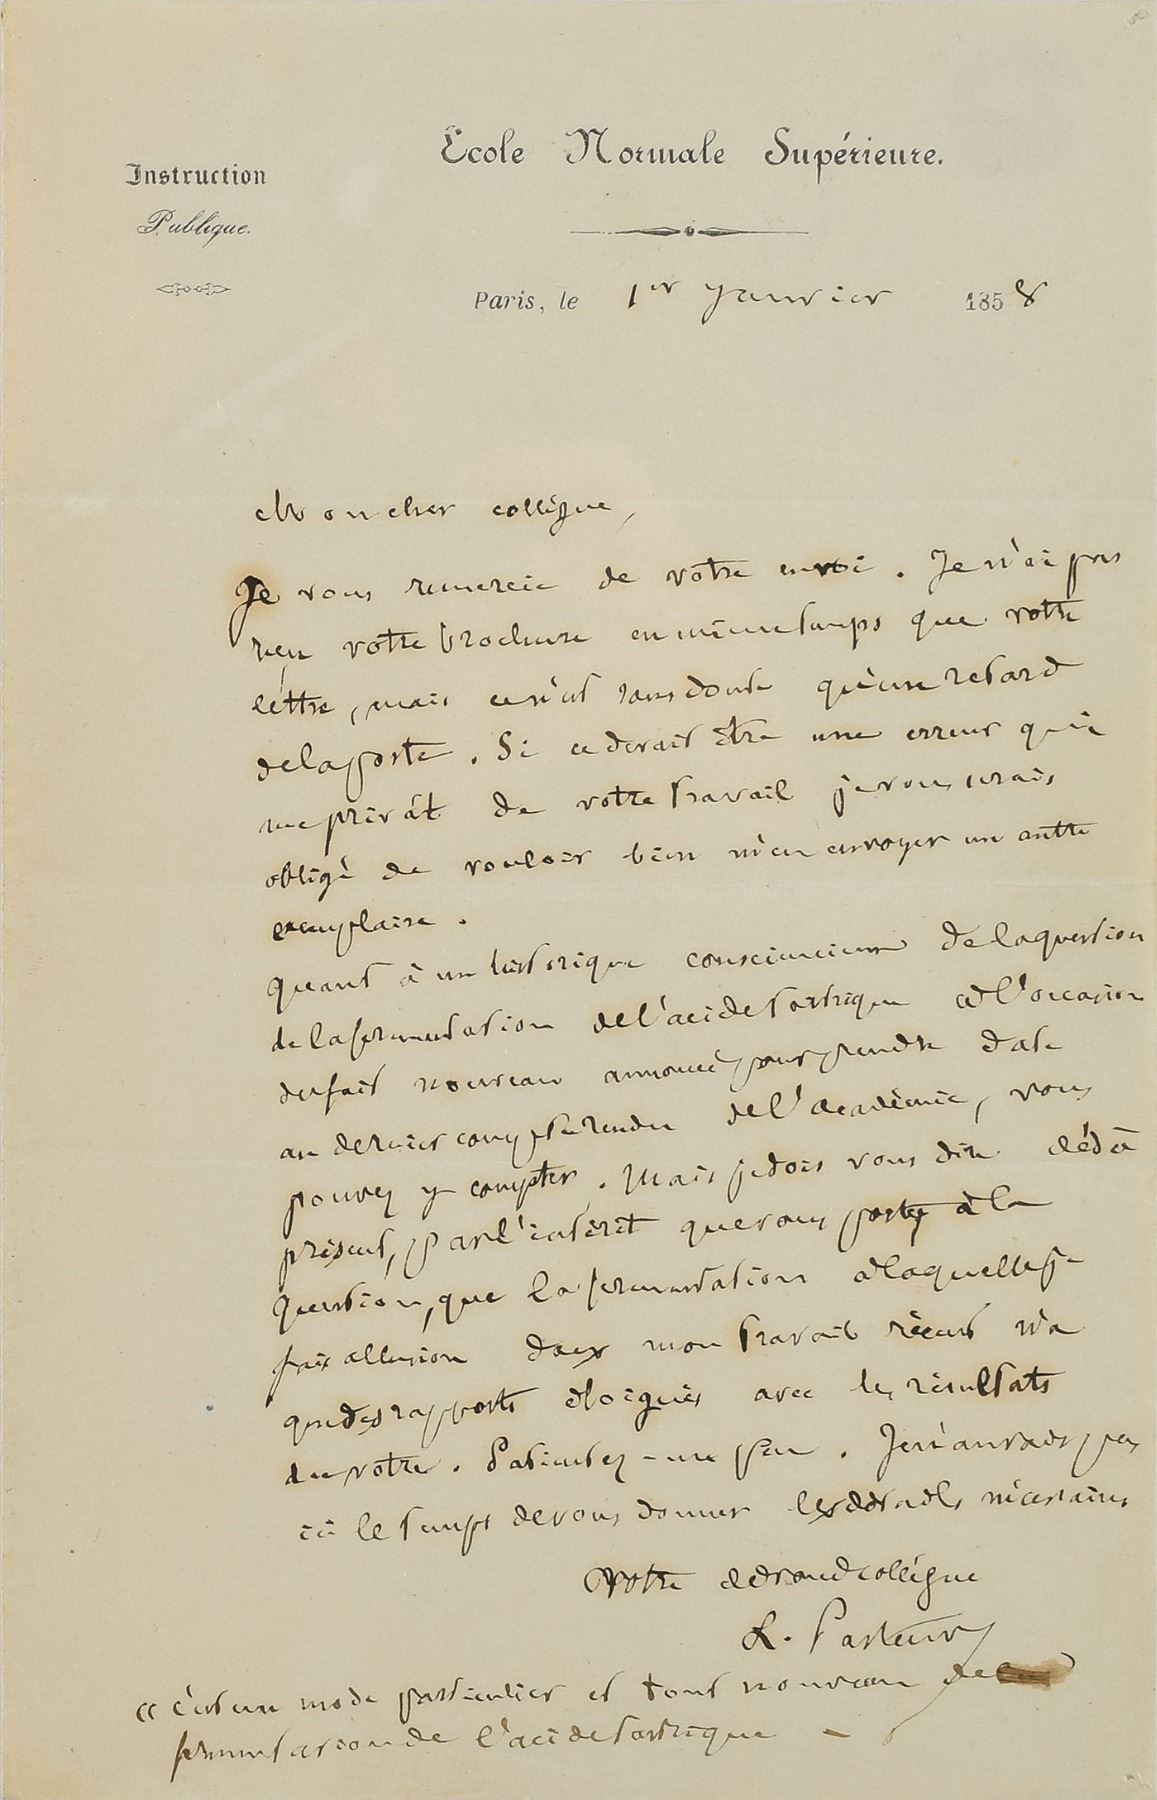 Ecole Normale Supérieure.
Instruction
Publique.
Paris, le 1er Janvier 1858
Mon cher collègue,
Je vous remercie de votre envoi. Je n'ai pas
reçu votre brochure en même temps que votre
lettre, mais ce n'est sans doute qu'un retard
de la poste. Si ce devait être une erreur qui
me privât de votre travail je vous serais
obligé de vouloir bien m'en envoyer un autre
exemplaire.
Quant à un historique consciencieux de la question
de la fermentation de l'acide tartrique à l'occasion
du fait nouveau annoncé pour prendre date
au dernier compte rendu de l'académie, vous
pouvez y compter. Mais je dois vous dire dès à
présent, par l'intérêt que vous portez à la
question, que la fermentation à laquelle je
fais allusion dans mon travail récent n'a
que des rapports éloignés avec les résultats
du votre. Patientez-un peu. Je n'aurais pas
ici le temps de vous donner les détails nécessaires
Votre dévoué collègue
L. Pasteur
« c'est un mode particulier et tout nouveau de
fermentation de l'acide tartrique —